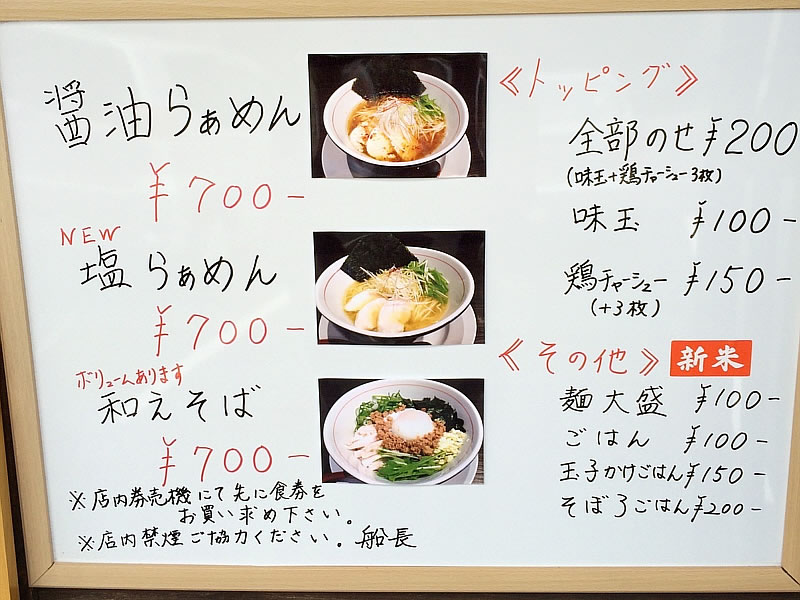 醤油らぁめん
¥700-
NEW
塩らぁめん
¥700-
ボリュームあります
和えそば
¥700-
※店内券売機にて先に食券を
お買い求め下さい。
※店内禁煙ご協力ください。船長
《トッピング》
全部のせ¥200
(味玉+鶏チャーシュー3枚)
味玉 ¥100-
鶏チャーシュー ¥150-
(+3枚)
《その他》 新米
麺大盛 ¥100-
ごはん ¥100-
玉子かけごはん¥150-
そぼろごはん¥200-